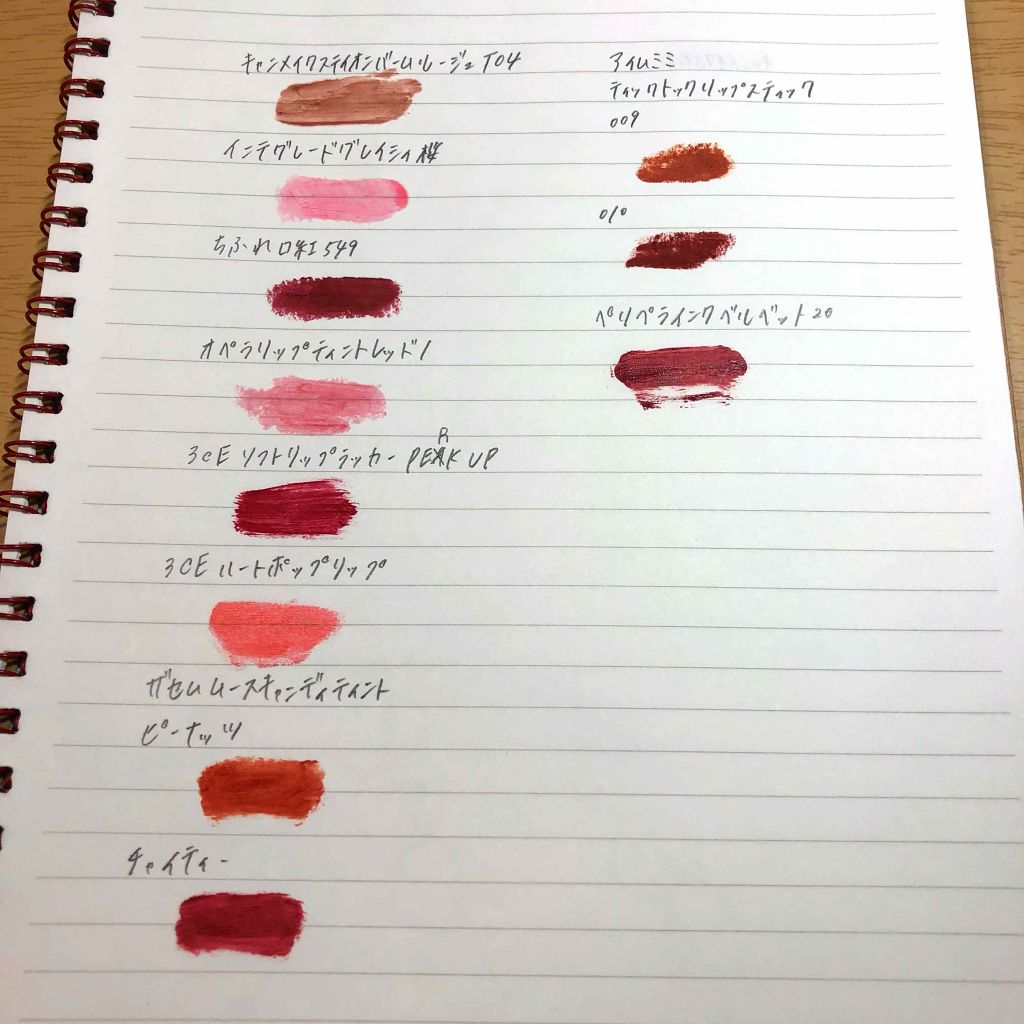 キャンメイクステイオンバームルージュT04
インテグレードグレイシィ桜
ちふれ口紅549
オペラリップティントレッド1
R
3CE ソフトリップラッカー PEAK UP
3CE ハートポップリップ
ザセムムースキャンディティント
ピーナッツ
チャイティー
アイムミミ
ティックトックリップスティック
009
010
ペリペラインクベルベット20